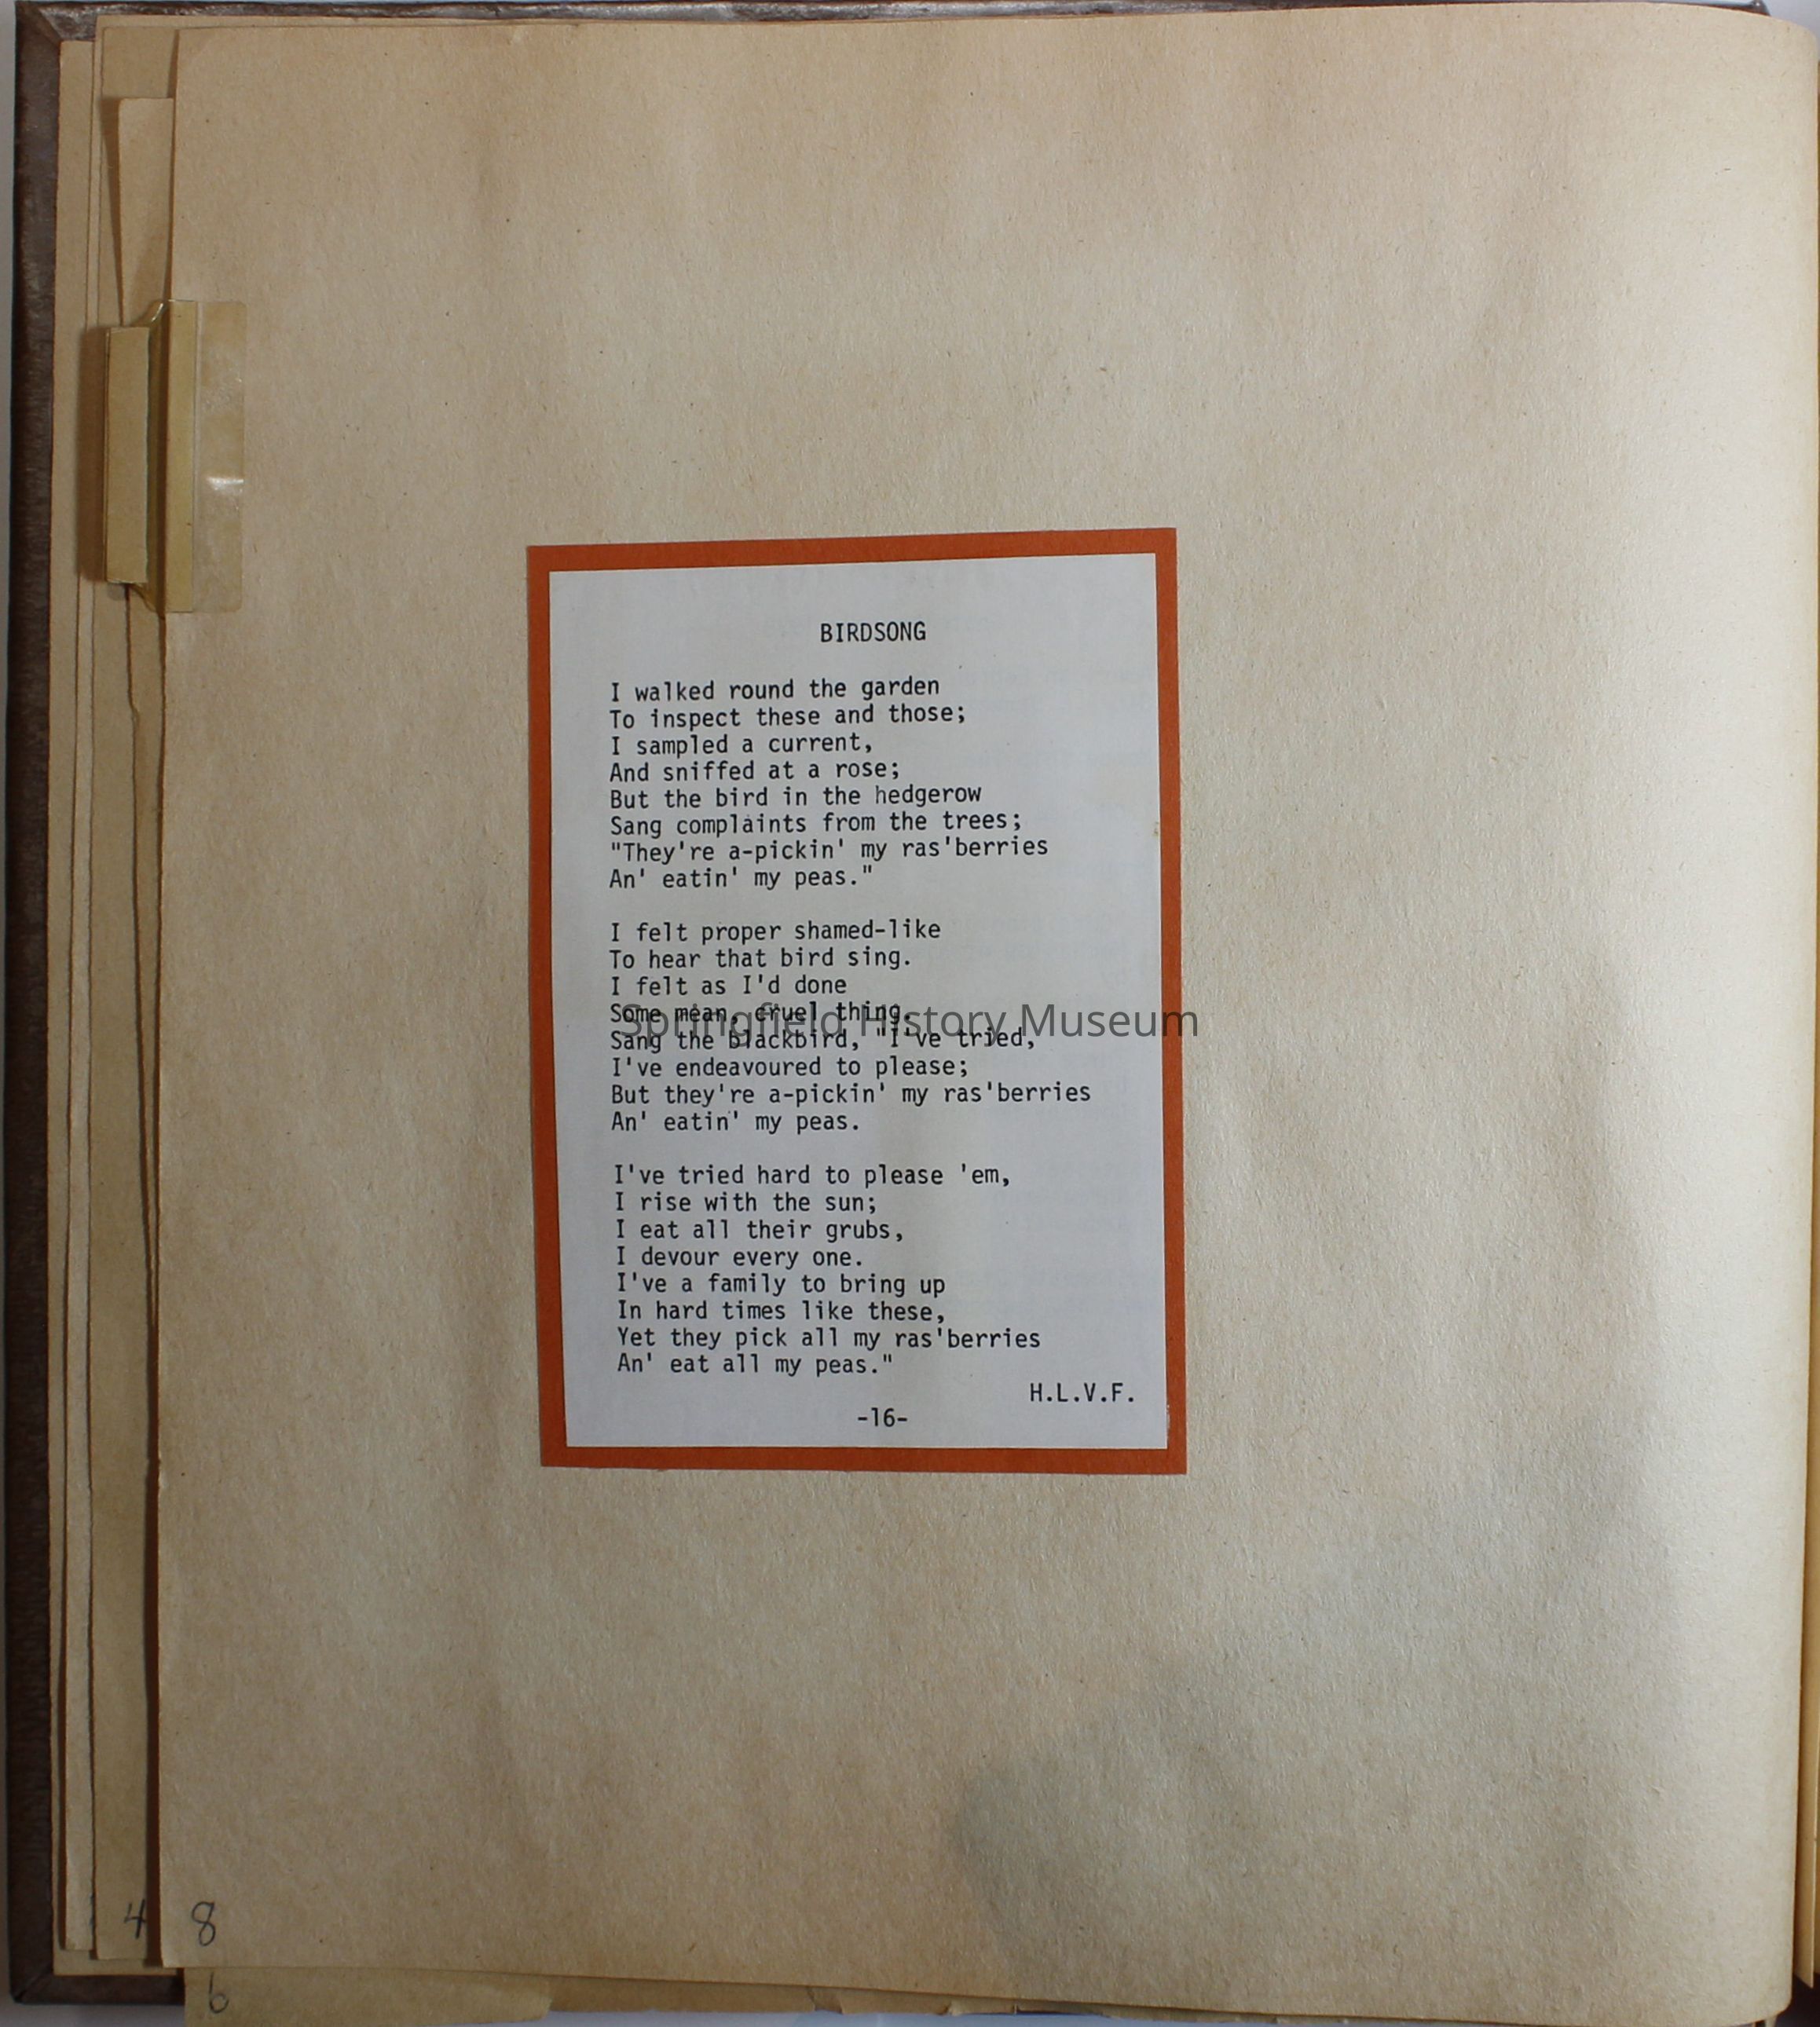 BIRDSONG
I walked round the garden
To inspect these and those;
I sampled a current,
And sniffed at a rose;
But the bird in the hedgerow
Sang complaints from the trees;
"They're a-pickin' my ras'berries
An' eatin' my peas."
I felt proper shamed-like
To hear that bird sing.
I felt as I'd done
Some mean, cruel thing.
Springfield History Museum
Sang the blackbird, "I've tried,
I've endeavoured to please;
But they're a-pickin' my ras'berries
An' eatin' my peas.
I've tried hard to please 'em,
I rise with the sun;
I eat all their grubs,
I devour every one.
I've a family to bring up
In hard times like these,
Yet they pick all my ras'berries
An' eat all my peas."
H.L.V.F.
-16-
4
8
6